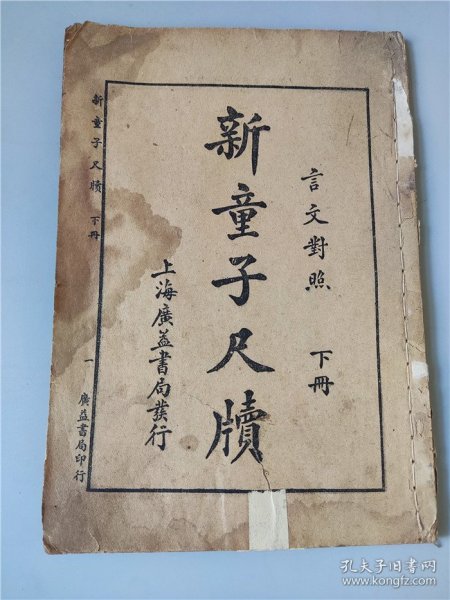 言文對照
下冊
新童子尺牘
上海廣益書局發行
新童子尺牘 下冊
一
廣益書局印行
孔夫子旧书网
www.kongfz.com